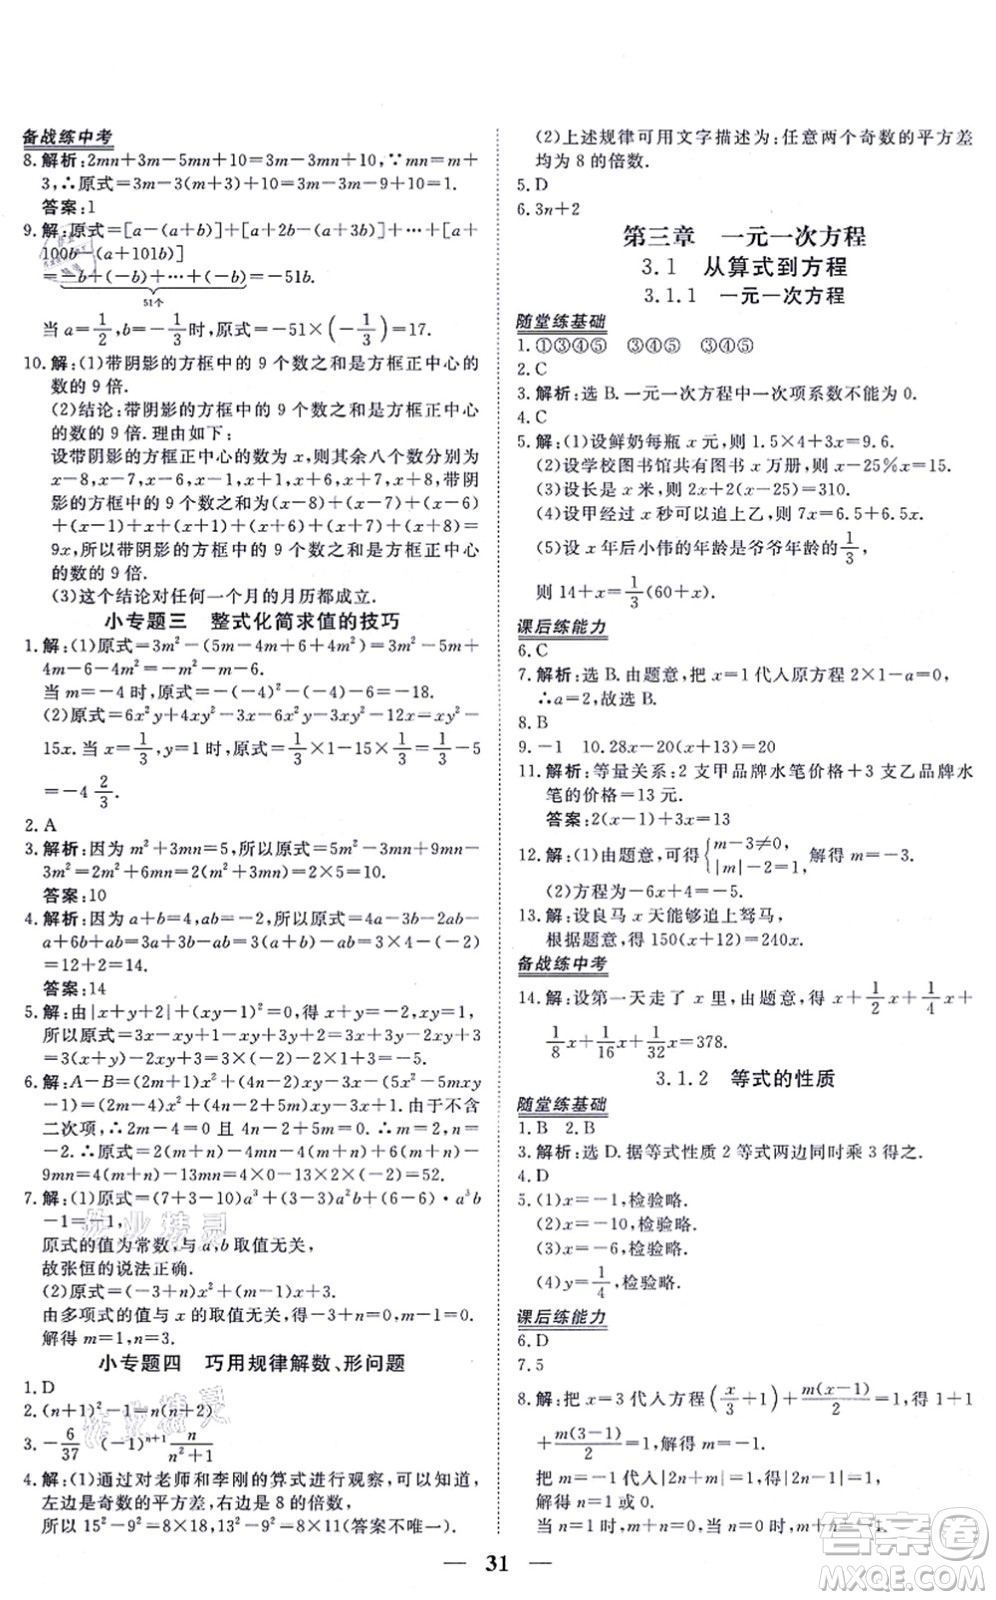 备战练中考
8.解析:2mn+3m-5mn+10=3m-3mn+10,∵mn=m+
3,∴原式=3m-3(m+3)+10=3m-3m-9+10=1.
答案:1
9.解:原式=[a-(a+b)]+[a+2b-(a+3b)]+…+[a+
100b-(a+101b)]
=-b+(-b)+…+(-b)=-51b.
51个
当 a=1/2,b=-1/3时,原式=-51×(-1/3)=17.
10.解:(1)带阴影的方框中的 9 个数之和是方框正中心的
数的 9 倍.
(2)结论:带阴影的方框中的 9 个数之和是方框正中心
的数的 9 倍.理由如下:
设带阴影的方框正中心的数为 x,则其余八个数分别为
x-8,x-7,x-6,x-1,x+1,x+6,x+7,x+8,带阴
影的方框中的 9 个数之和为(x-8)+(x-7)+(x-6)
+(x-1)+x+(x+1)+(x+6)+(x+7)+(x+8)=
9x,所以带阴影的方框中的 9 个数之和是方框正中心
的数的 9 倍.
(3)这个结论对于任何一个月的月历都成立.
小专题三 整式化简求值的技巧
1.解:(1)原式=3m²-(5m-4m+6+4m²)=3m²-5m
+4m-6-4m²=-m²-m-6.
当 m=-4 时,原式=-16+4-6=-18.
(2)原式=6x²y+4xy²-3x-6x²y-3xy²-12x=xy²-
15x.当 x=1/3,y=1时,原式=1/3×1-15×1/3=1/3-5
=-4 2/3.
2.A
3.解析:因为 m²+3mn=5,所以原式=5m²-3m²+9mn-
3m²=2m²+6mn=2(m²+3mn)=10.
答案:10
4.解析:因为 a+b=4,ab=-2,所以原式=4a-3b-2ab-
a+6b+ab=3a+3b-ab=3(a+b)-ab=3×4-(-2)
=12+2=14.
答案:14
5.解:由|x+y+2|+(xy-1)²=0,得 x+y=-2,xy=1,
所以原式=3x-xy+1-xy+3y+2=3x+3y-2xy+3
=3(x+y)-2xy+3=3×(-2)-2×1+3=-5.
6.解:A-B=(2m+1)x²+5x-8mxy-(5x²-2mxy
-1)=(2m-4)x²+(5-6m)xy+1.由于不含
二次项,∴2m-4=0,5n-6m=0,∴m=2,n=
-2.∴原式=2m+2n-(6m+9mn)+4m+4n=
9mn=4(m+n)-13mn=4×0-13×2×(-2)=52.
7.解:(1)原式=(7+3-10)a³+(3-3)a²b+(6-6)·a³b
-1=-1.
原式的值为常数,与 a,b 取值无关,
故张恒的说法正确.
(2)原式=(-3+n)x²+(m-1)x+3.
由多项式的值与 x 的取值无关,得-3+n=0,m-1=0.
解得 m=1,n=3.
小专题四 巧用规律解数、形问题
1.D
2.(n+1)²-1=n(n+2)
3.-6/37 (-1)ⁿ⁺¹ n/(n²+1)
4.解:(1)通过对老师和李刚的算式进行观察,可以知道,
左边是奇数的平方差,右边是 8 的倍数,
所以 15²-9²=8×18,13²-9²=8×11(答案不唯一).
(2)上述规律可用文字描述为:任意两个奇数的平方差
均为 8 的倍数.
5.D
6.3n+2
第三章 一元一次方程
3.1 从算式到方程
3.1.1 一元一次方程
随堂练基础
1.①③④⑤ ③④⑤ ③④⑤
2.C
3.解析:选 B.一元一次方程中一次项系数不能为 0.
4.C
5.解:(1)设鲜奶每瓶 x 元,则 1.5×4+3x=9.6.
(2)设学校图书馆共有图书 x 万册,则 x-25%x=15.
(3)设长是 x 米,则 2x+2(x-25)=310.
(4)设甲经过 x 秒可以追上乙,则 7x=6.5+6.5x.
(5)设 x 年后小伟的年龄是爷爷年龄的1/3,
则 14+x=1/3(60+x).
课后练能力
6.C
7.解析:选 B.由题意,把 x=1 代入原方程 2×1-a=0,
∴a=2,故选 B.
8.B
9.-1 10.28x-20(x+13)=20
11.解析:等量关系:2 支甲品牌水笔价格+3 支乙品牌水
笔的价格=13 元.
答案:2(x-1)+3x=13
12.解:(1)由题意,可得{m-3≠0, |m|-2=1, 解得 m=-3.
(2)方程为-6x+4=-5.
13.解:设良马 x 天能够追上驽马,
根据题意,得 150(x+12)=240x.
备战练中考
14.解:设第一天走了 x 里,由题意,得 x+1/2x+1/4x+
1/8x+1/16x+1/32x=378.
3.1.2 等式的性质
随堂练基础
1.B 2.B
3.解析:选 D.据等式性质 2 等式两边同时乘 3 得之.
4.D
5.(1)x=-1,检验略.
(2)x=-10,检验略.
(3)x=-6,检验略.
(4)y=1/4,检验略.
课后练能力
6.D
7.5
8.解:把 x=3 代入方程(x/3+1)+m(x-1)/2=1,得 1+1
+m(3-1)/2=1,解得 m=-1.
把 m=-1 代入|2n+m|=1,得|2n-1|=1,
解得 n=1 或 0.
当 n=1 时,m+n=0;当 n=0 时,m+n=-1.
31
答案圈
MXQE.COM